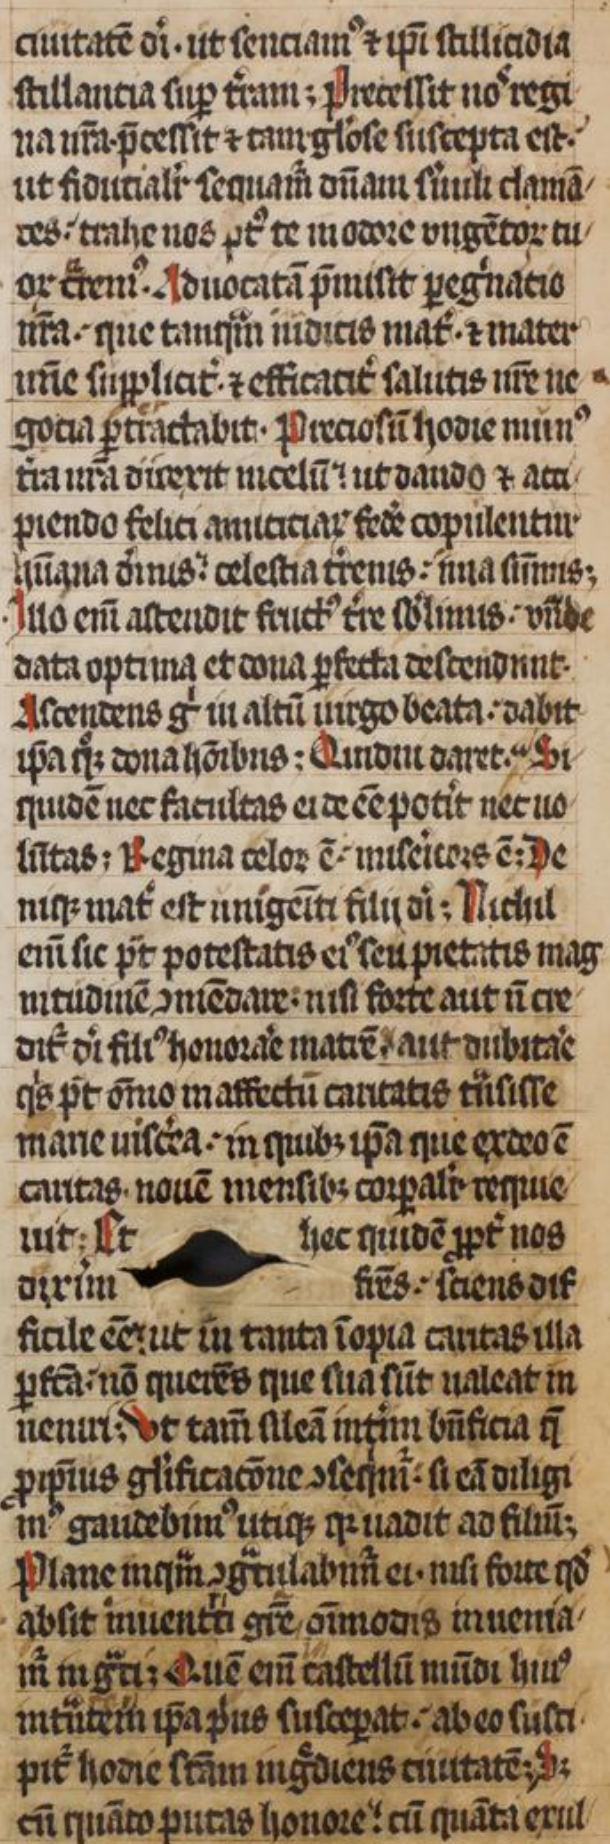 ciuitatē di᷒. ut senciamꝰ ⁊ ip̄i stillicidia
stillantia suꝑ t̄ram; Precessit nos regi
na nr̄a. p̄cessit ⁊ tam gl̓ose suscepta est.
ut fiducialit̓ sequam̄ dn̄am s̓uuli clamā
tes. trahe nos pꝰ te in odore ungētoꝝ tu
oꝝ c̄remꝰ. Aduocatā p̄misit ꝑegͥnatio
nr̄a. que tanqͣm iudicis mat̓. ⁊ mater
mīe supplicit̓. ⁊ efficacit̓ salutis nr̄e ne
gocia ꝑtractabit. Preciosū hodie munꝰ
t̄ra nr̄a direxit in celū ut dando ⁊ acci
piendo felici amiciciaꝝ fed̓e copulentur
hūana diuīnis celestia t̄renis. ima sūmis;
Illo em̄ ascendit fructꝰ t̄re sb̓limis. vn̄de
data optima et dona ꝑfecta descendunt.
Ascendens gͦ in altū uirgo beata. dabit
ip̄a qͦꝫ dona hōibus; Quidni daret. Si
quidē nec facultas ei de ēē pot̓it nec uo
lūtas; Regina celoꝝ ē. mis̓icors ē; De
niqꝫ mat̓ est unigēiti filij di᷒; Nichil
em̄ sic pt̄ potestatis eiꝰ seu pietatis mag
nitudinē ↄmēdare. nisi forte aut n̄ cre
dit̓ di᷒ filiꝰ honorar̓e matrē. aut dubitar̓e
qͥs pt̄ om̄io in affectū caritatis tn̄sisse
marie uisc̓a. in quibꝫ ip̄a que ex deo ē
caritas. nouē mensibꝫ corꝑalit̓ requie
uit; Et hec quidē ꝓpt̓ nos
dixim fr̄es. sciens dif
ficile ēē. ut in tanta īopia caritas illa
ꝑfcā. nō querēs que sua sūt ualeat in
ueniri; Vt tam̄ sileā int̓im bn̄ficia q̄
ꝓ ip̄ius gl̓ificacōne ↄseqͥmͬ. si eā diligi
mꝰ gaudebimꝰ utiqꝫ qꝛ uadit ad filiū;
Plane inqͣm ↄgͣtulabim̄ ei. nisi forte qd̓
absit inuentͥci gr̄e om̄imodis inuenia
m̄ ingͣti; Quē em̄ castellū mūdi huiꝰ
intͣtem ip̄a pͥus suscepat. ab eo susci
pit̓ hodie scām ingͬdiens ciuitatē; Sꝫ
cū quāto putas honore cū quāta exul